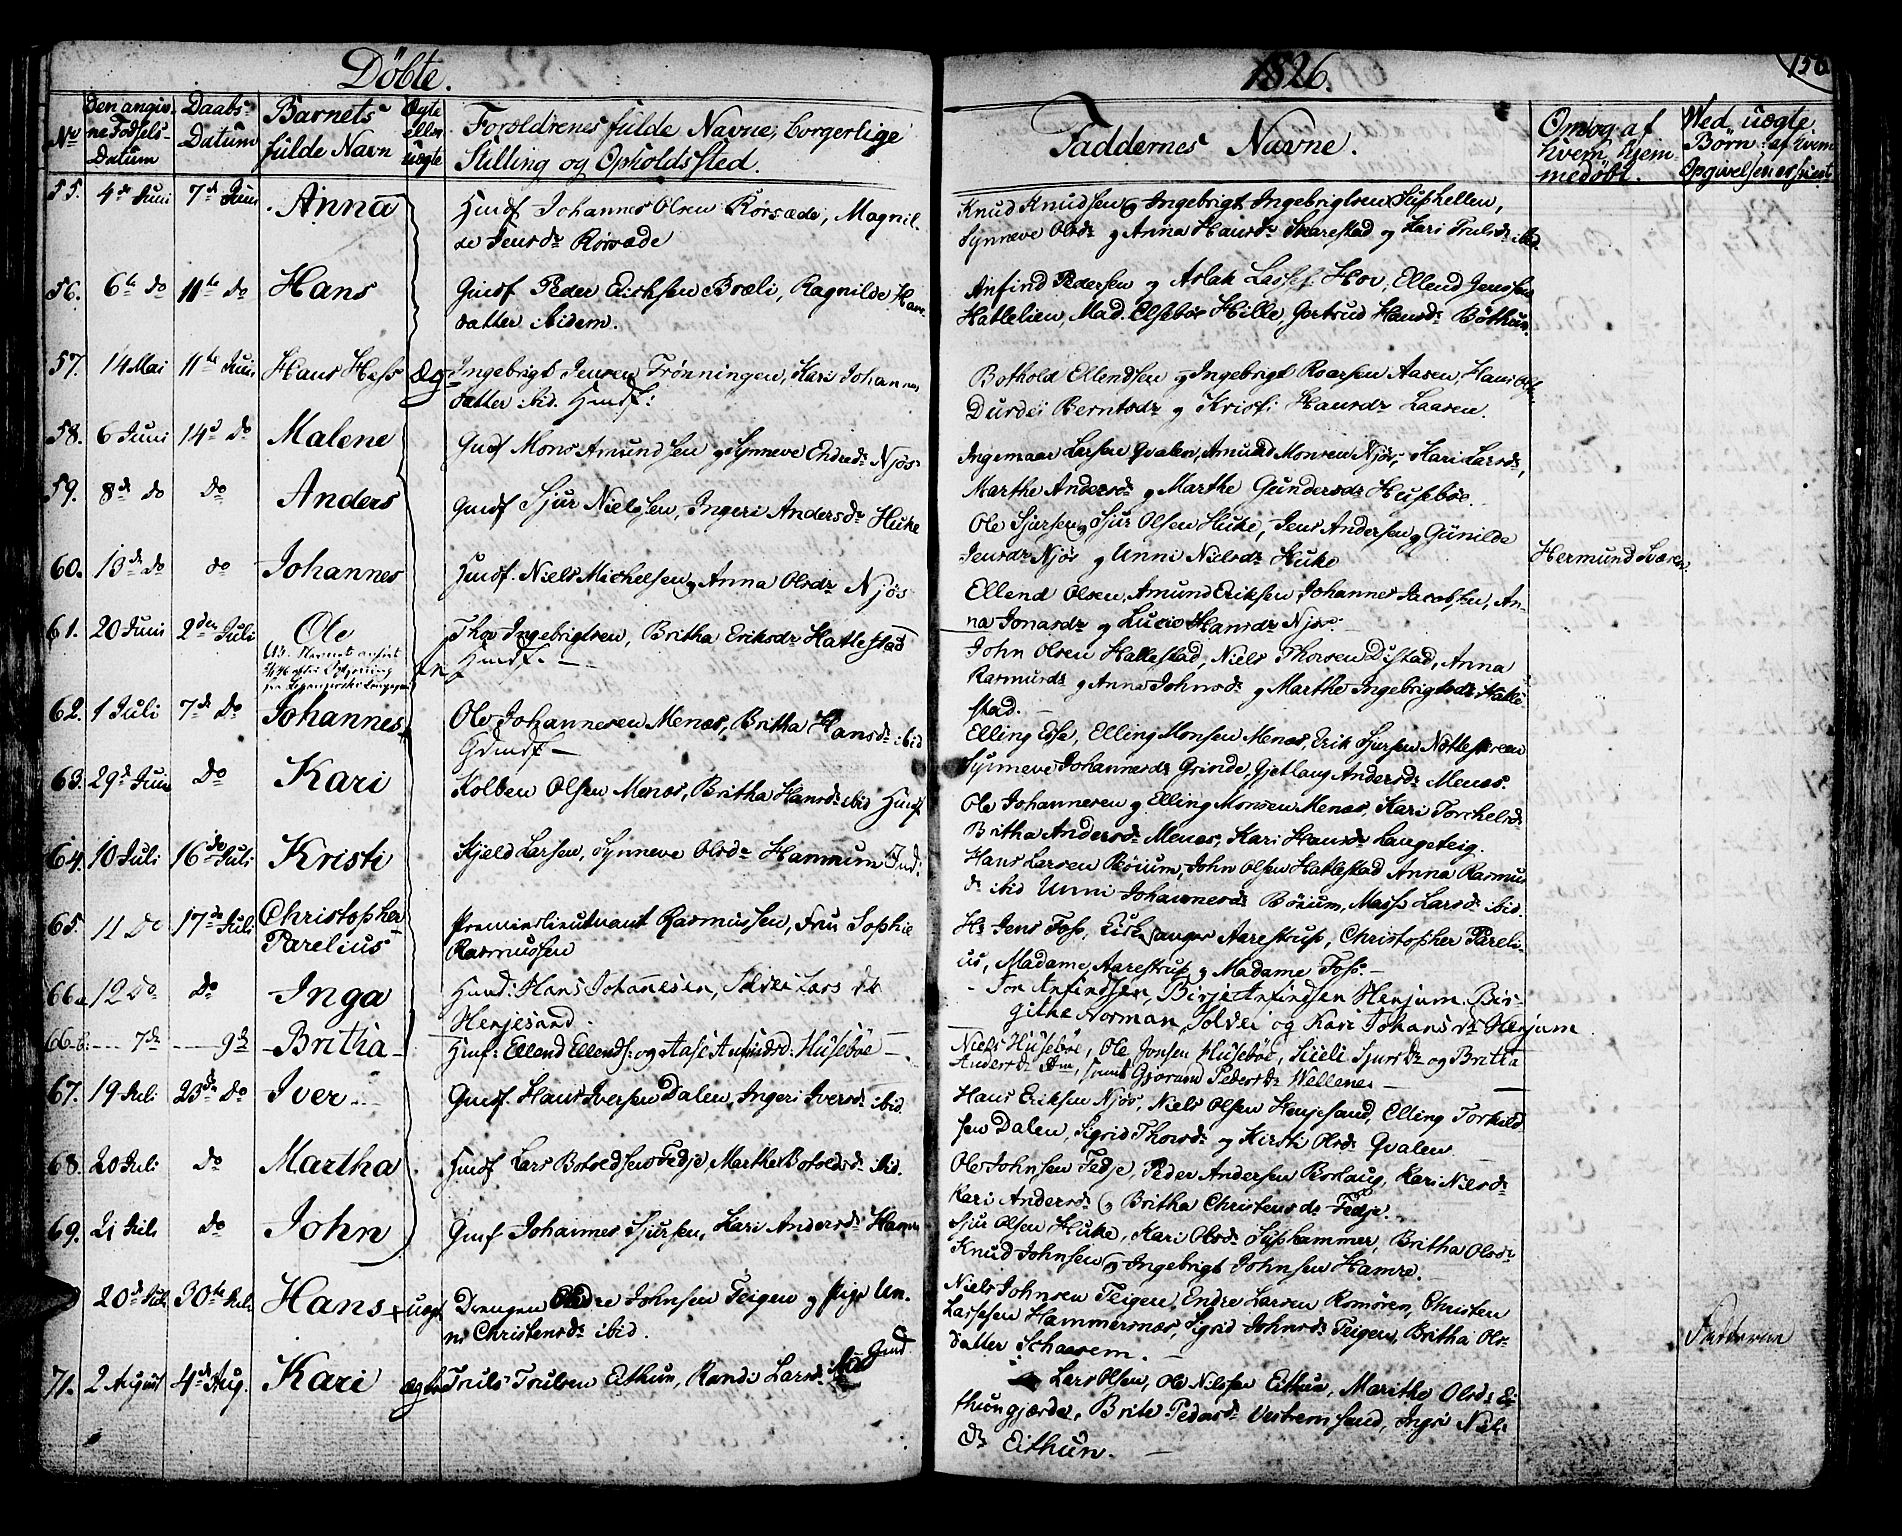 Döbte.
1826.
156
No
Den angiv-
ne Födsels-
Datum
Daabs-
Datum
Barnets
fulde Navn
Ægte
eller
uægte
Forældrenes fulde Navne, borgerlige
Stilling og Opholdssted.
Faddernes Navne.
Om og af
hvem hjem-
medöbt.
Ved uægte
Børn: af hvem
Opgivelsen er skeet
55. 4de Juni 7de Juni Anna Huusf Johannes Olsen Rörsæde, Magnil-
de Jensdr Rörsæde
Knud Knudsen og Ingebrigt Ingebrigtsen Suphellen,
Synneve Olsdr og Anna Hansdr Skarestad og Kari Trulsdr ibid
56. 6te do 11te do Hans Gmdf Peder Erichsen Bræli, Ragnilde Hans-
datter ibidem.
Anfind Pedersen og Aslak Lasses. Hov, Ellend Jenssen
Hatlelien, Mad. Elsebes Hille, Gertrud Hansdr Böthun.
57. 14 Mai 11te Juni Hans Hess Æg- Ingebrigt Jensen Trönningen, Kari Johannes
datter ibid. Huusf:
Bothold Ellendsen og Ingebrigt Roarsen Aasen, Hans Ols-
Durdei Berntsdr og Kristi Hansdr Laasen.
58. 6 Juni 14de do Malene Gmdf Mons Amundsen og Synneve Endredr Njös
Ingemaar Larsen Qvalen, Amund Monsen Njös, Kari Larsdr,
Marthe Andersdr og Marthe Gundersdr Husebøe.
59. 8de do do Anders Gmdf Sjur Nielsen, Ingeri Andersdr Huke
Ole Sjursen og Sjur Olsen Huke, Jens Andersen og Gunilde
Jensdr Njös og Unni Nielsdr Huke
60. 13de do do Johannes Huusf. Niels Michelsen og Anna Olsdr Njös
Ellend Olsen, Amund Eriksen Johannes Jacobsen, An-
na Jonasdr og Lucie Hansdr Njös.
Hermund Sværen.
61. 20 Juni 2den Juli Ole Thor Ingebrigtsen, Britha Eriksdr Hatlestad
Huusf. —
John Olsen Hatlestad, Niels Thorsen Distad, Anna
Rasmusdr og Anna Johnsdr og Marthe Ingebrigtsdr Hatle
stad. —
62. 1 Juli 7de Do Johannes Ole Johannesen Menæs, Britha Hansdr ibid
Gdmdf —
Elling Esse, Elling Monsen Menæs, Erik Sjursen Nötleseteen
Synneve Johannesdr Grinde, Gjetlaug Andersdr Menæs.
63. 29de Juni Do Kari Kolben Olsen Menæs, Britha Hansdr ibid Huusf
Ole Johannesen og Elling Monsen Menæs, Kari Torchelsdr
Britha Andersdr Menæs, Kari Hansdr Langeteig.
64. 10 Juli 16de Juli Kristi Kjeld Larsen, Synneve Olsdr Hammum
Hans Larsen Böium, John Olsen Hatlestad Anna Rasmus
dr ibid Unni Johannesdr Böium, Larsdr ibid.
65. 11 Do 17de Juli Christopher
Parelius
Premierlieutnant Rasmussen, Frue Sophie
Rasmussen
Hr Jens Foss, Aarestrup, Christopher Pareli-
us, Madame Aarestrup og Madame Foss. —
66a 12 Do Do Inga Huusf: Hans Johannesen, Solvei Lars dr
Henjesand.
- Tor Anfindsen, Birje Anfindsen Henjum Bir-
githe Norman Solvei og Kari Johans dr Henjum
66-b: — 7de — 9de Britha Huusf: Ellend Ellends: og Aase Anfindsd: Husebøe —
Niels Husebøe, Ole Jonsen Husebøe, Siceli Sjursdr og Britha
Andersdr samt Gjorun Pedersdr Wellene —
67. 19 Juli 23de Do Iver Gmdf. Hans Iversen Dalen, Ingeri Iversdr ibid
Hans Eriksen Njös, Niels Olsen Henjesand, Elling Torkild
sen Dalen, Sigrid Thorsdr og Kirsti Olsdr Qvalen
68. 20 Juli Do Martha Huusf Lars Botoldsen Fedje Marthe Botoldsdr ibid.
Ole Johnsen Fedje, Peder Andersen Borlaug, Kari Nielsdr
Kari Andersdr og Britha Christensdr Fedje.
69. 21 Juli do John Gmdf Johannes Sjursen, Kari Andersdr Hamre
Sjur Olsen Huke, Kari Olsdr Suphammer, Britha Olsdr
Knud Johnsen og Ingebrigt Johnsen Hamre. —
20de Juli 30te Juli Hans uægte Drengen Endre Johnsen Teigen og pige Un-
ni Christensdr ibid.
Niels Johnsen Teigen, Endre Larsen Romören, Christen
Lassesen Hammersnæs, Sigrid Johnsdr Teigen, Britha Ols-
datter Schaarem. —
Fadderne
71. 2 August 4de Aug. Kari Ægte Truls Trulsen Eithun, Randi Larsdr ibid Gmd
Lars Olsen, Ole Nilsen Eithun, Marithe Olsdr Ei-
thungjærde, Brite Pedersdr Vestreimsand, Ingri Nils
dr Eithun. —